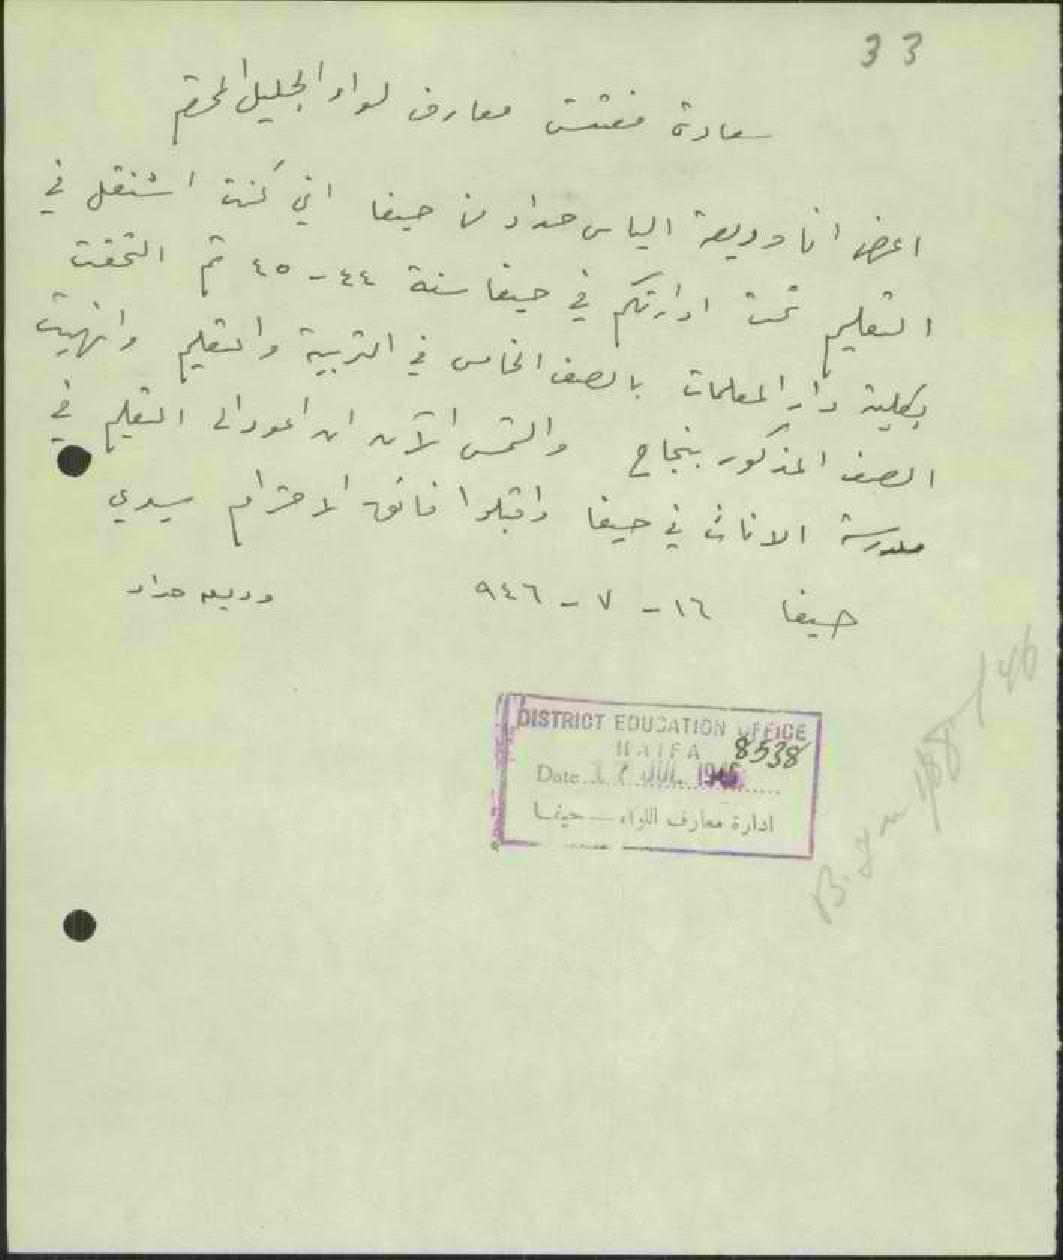 33
سعادة مفتش معارف لواء الجليل المحترم
اعرض انا وديعة الياس حداد من حيفا اني كنت اشتغل في
التعليم تحت ادارتكم في حيفا سنة ٤٤ - ٤٥ ثم التحقت
بكلية دار المعلمات بالصف الخامس في التربية والتعليم وانهيت
الصف المذكور بنجاح والتمس الآن ان اعود الى التعليم في
مدرسة الاناث في حيفا واقبلوا فائق الاحترام سيدي
حيفا ١٦ - ٧ - ٩٤٦ وديعه حداد
DISTRICT EDUCATION OFFICE
HAIFA 8538
Date 17 JUL 1946
ادارة معارف اللواء — حيفا